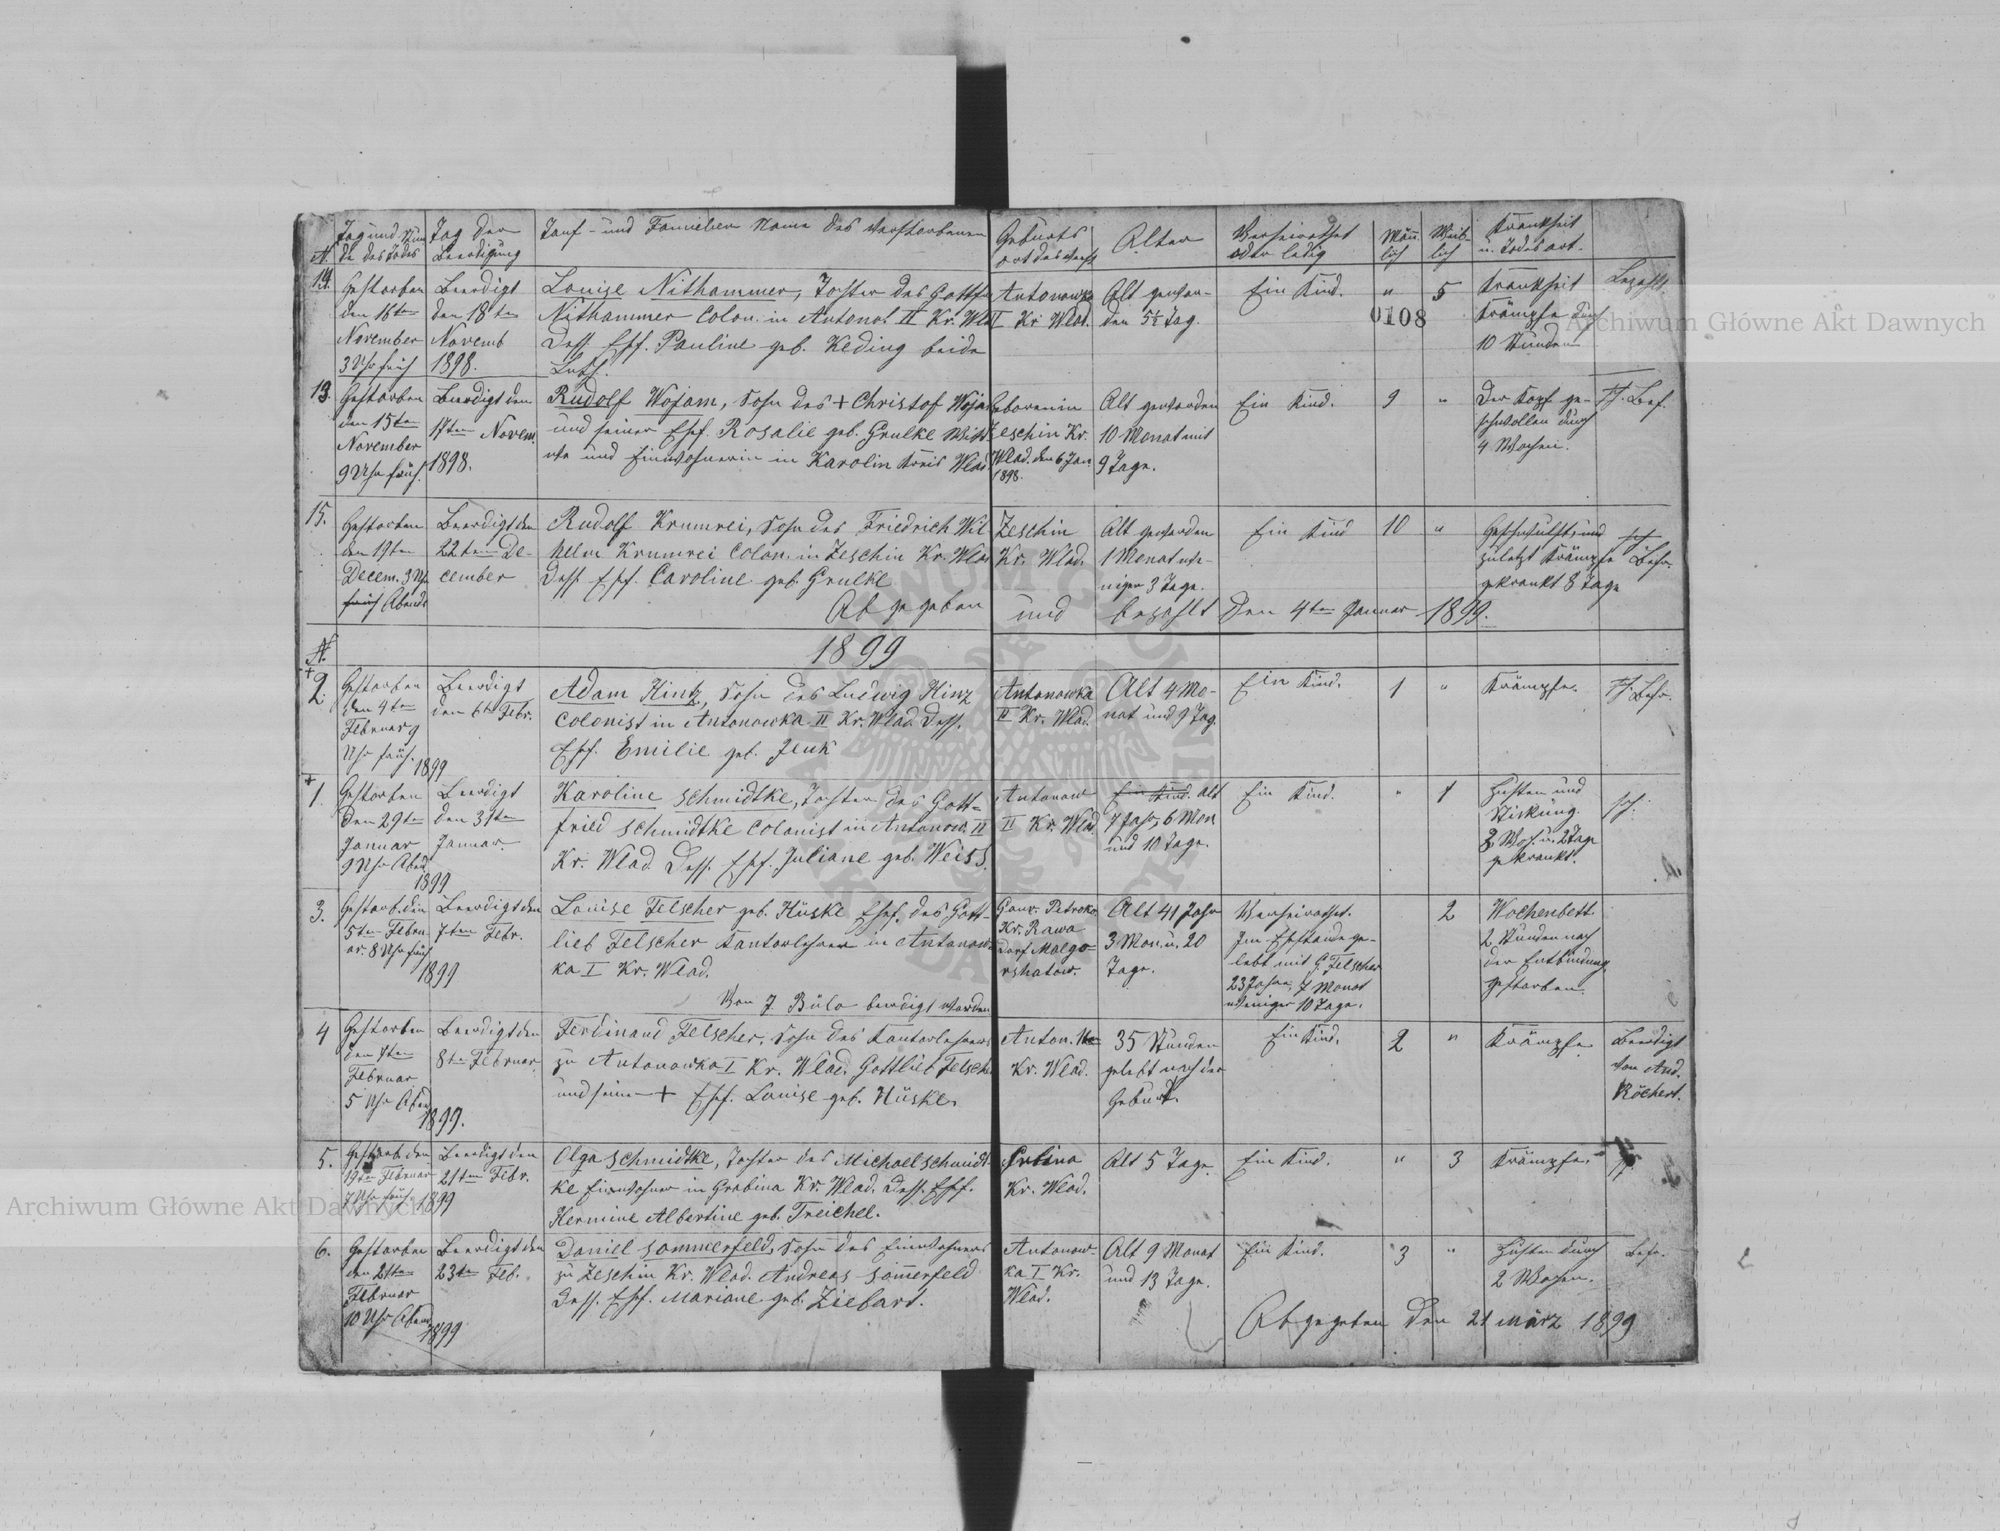 N. Tag und Stunde des Todes
Tag der Beerdigung
Tauf- und Familien Name des Verstorbenen
Geburts ort des Verst.
Alter
Verheirathet oder ledig
Männlich
Weiblich
Krankheit u. Todesart.
14.
Gestorben
den 16ten
November
3 Uhr früh
Beerdigt
den 18ten
Novemb
1898.
Louise Nithammer, Tochter des Gottfr
Nithammer Colon. in Antonow. II Kr. Wlad
Dess. Ehf. Pauline geb. Keding beide
Luth.
Antonowka
II Kr Wlad.
Alt gewor-
den 5½ Tag.
Ein Kind.
"
5
Krankheit
Krämpfe durch
10 Stunden
Bezahlt.
0108
13.
Gestorben
den 15ten
November
9 Uhr früh.
Beerdigt den
17ten Novem.
1898.
Rudolf Wojam, Sohn des + Christof Wojam
und seiner Ehef. Rosalie geb. Grulke Witt
we und Einwohnerin in Karolin Kreis Wlad
Geboren in
Zeschin Kr.
Wlad. den 6 Jan.
1898.
Alt geworden
10 Monat mit
9 Tage.
Ein Kind.
9
"
Der Kopf ge-
schwollen durch
4 Wochen.
15.
Gestorben
den 19ten
Decem. 3 Uhr
früh Abends
Beerdigt den
22ten De-
cember
Rudolf Krumrei, Sohn des Friedrich Wil
helm Krumrei Colon. in Zeschin Kr. Wlad
Dess. Ehf. Caroline geb. Grulke
Zeschin
Kr. Wlad.
Alt geworden
1 Monat we-
niger 3 Tage.
Ein Kind
10
"
Geschwulst, und
zuletzt Krämpfe
gekrankt 8 Tage
Abgegeben und bezahlt den 4ten Januar 1899.
N.
1899
+
2.
Gestorben
den 4ten
Februar 9
Uhr früh.
1899
Beerdigt
den 6ten Febr.
Adam Hintz, Sohn des Ludwig Hinz
Colonist in Antonowka II Kr. Wlad. Dess.
Ehf. Emilie geb. Jenk
Antonowka
II Kr. Wlad.
Alt 4 Mo-
nat und 9 Tag.
Ein Kind.
1
"
Krämpfe.
+
1.
Gestorben
den 29ten
Januar
9 Uhr Abend
1899
Beerdigt
den 31ten
Januar.
Karoline Schmidtke, Tochter des Gott-
fried Schmidtke Colonist in Antonow. II
Kr. Wlad. Dess. Ehf. Juliane geb. Weiss.
Antonow
II Kr. Wlad
Ein Kind. Alt
7 Jahr, 6 Mon
und 10 Tage.
Ein Kind.
"
1
Husten und
Stickung.
2 Woch. u. 2 Tage
gekrankt.
3.
Gestorb. den
5ten Febru-
ar. 8 Uhr früh
1899
Beerdigt den
7ten Febr.
Louise Felscher geb. Hüske Ehef. des Gott-
lieb Felscher Kantorlehrer in Antonow-
ka I Kr. Wlad.
Von J. Bülo beerdigt worden
Gouv. Petroko
Kr. Rawa
Dorf Malgo-
rshatow.
Alt 41 Jahr
3 Mon. u. 20
Tage.
Verheirathet.
Im Ehestande ge-
lebt mit G. Felscher
23 Jahre, 7 Monat
weniger 10 Tage.
2
Wochenbett
2 Stunden nach
der Entbindung
gestorben.
4
Gestorben
den 7ten
Februar
5 Uhr Abend
1899.
Beerdigt den
8ten Februar.
Ferdinand Felscher, Sohn des Kantorlehrers
zu Antonowka I Kr. Wlad. Gottlieb Felscher
und seiner + Ehf. Louise geb. Hüske.
Kr. Wlad.
35 Stunden
gelebt nach der
Geburt.
Ein Kind.
2
"
Krämpfe
Beerdigt
von And.
Röchert.
5.
Gestorb. den
19ten Februar
7 Uhr früh 1899
Beerdigt den
21ten Febr.
Olga Schmidtke, Tochter des Michael Schmidt-
ke Einwohner in Grabina Kr. Wlad. Dess. Ehf.
Hermine Albertine geb. Treichel.
Kr. Wlad.
Alt 5 Tage
Ein Kind.
"
3
Krämpfe.
6.
Gestorben
den 21ten
Februar
10 Uhr Abend
1899
Beerdigt den
23ten Feb.
Daniel Sommerfeld, Sohn des Einwohners
zu Zeschin Kr. Wlad. Andreas Som̄erfeld
Dess. Ehf. Mariane geb. Ziebart.
Antonow-
ka I Kr.
Wlad.
Alt 9 Monat
und 13 Tage.
Ein Kind.
3
"
Husten durch
2 Wochen.
Abgegeben den 21 März 1899
Archiwum Główne Akt Dawnych
Archiwum Główne Akt Dawnych